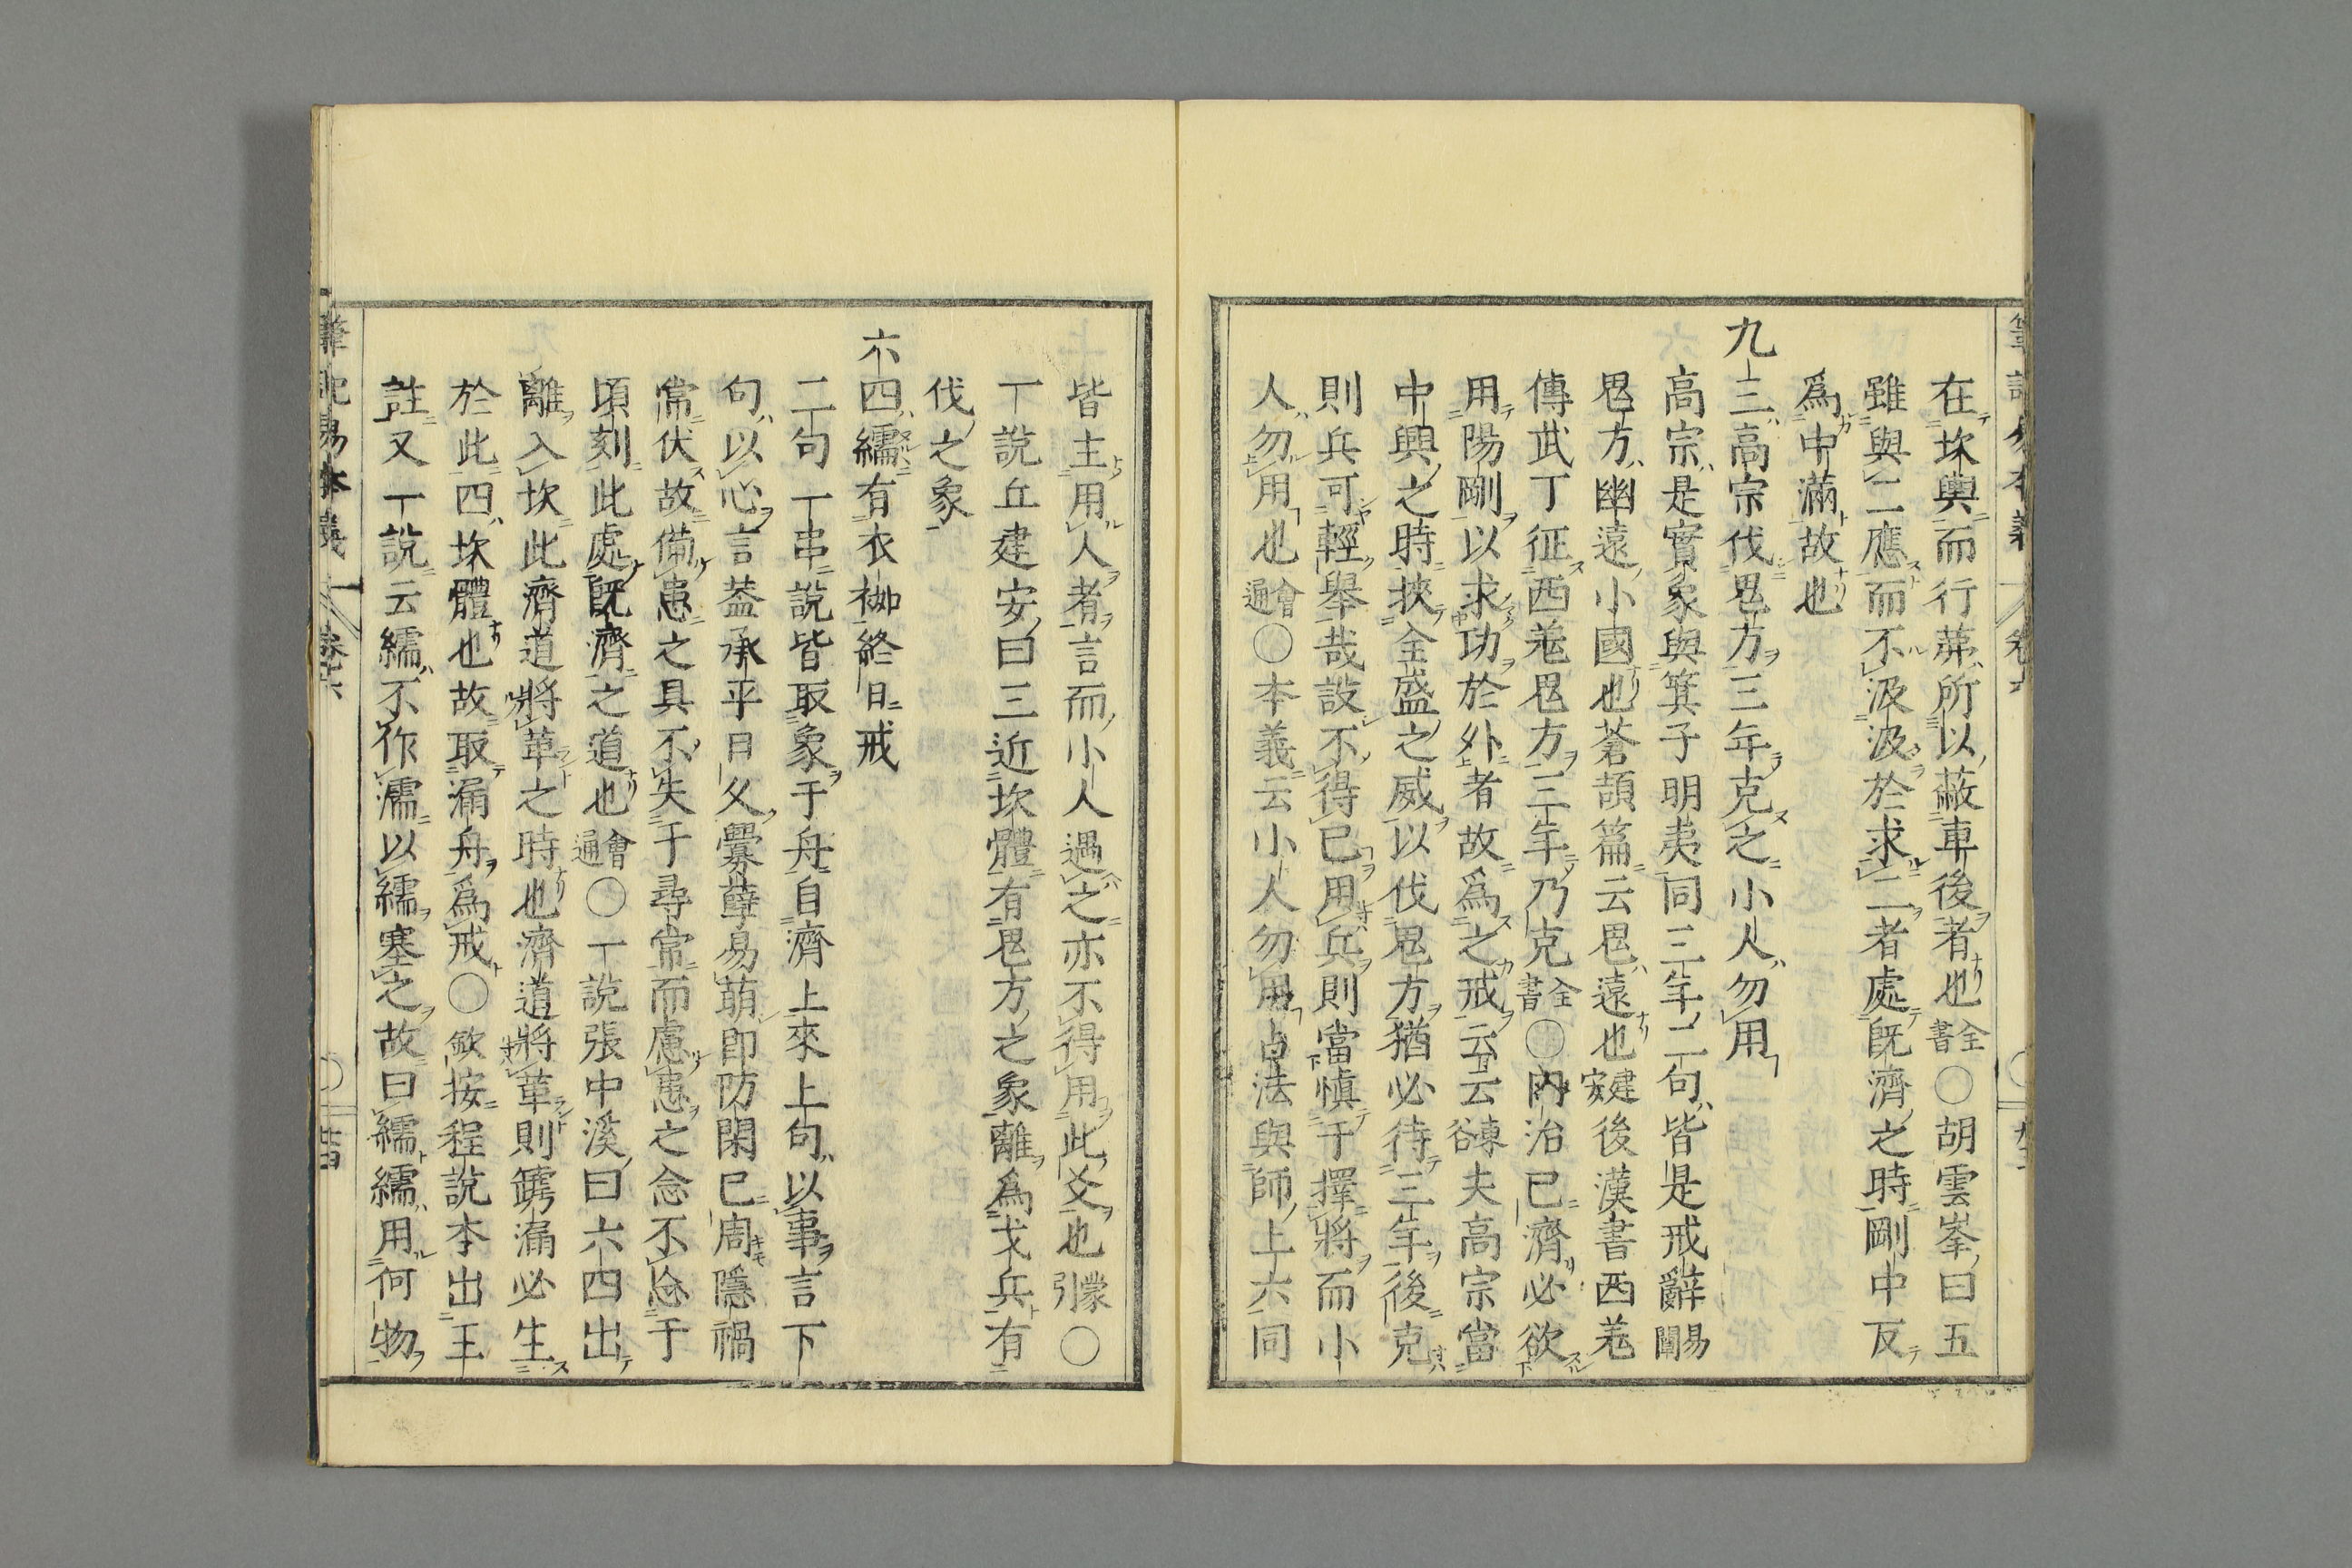 在坎輿而行茀所以蔽車後者也全書〇胡雲峯曰五
雖與二應而不汲汲於求二者處旣濟之時剛中反
爲中滿故也
九三高宗伐鬼方三年克之小人勿用
高宗是實象與箕子明夷同三年二句皆是戒辭易闡
鬼方幽遠小國也蒼頡篇云鬼遠也建安後漢書西羌
傳武丁征西羌鬼方三年乃克全書〇內治已濟必欲
用陽剛以求功於外者故爲之戒云云東谷夫高宗當
中興之時挾全盛之威以伐鬼方猶必待三年後克
則兵可輕舉哉設不得已用兵則當愼于擇將而小
人勿用也會通〇本義云小人勿用占法與師上六同
皆主用人者言而小人遇之亦不得用此爻也蒙引〇
一說丘建安曰三近坎體有鬼方之象離爲戈兵有
伐之象
六四繻有衣袽終日戒
二句一串說皆取象于舟自濟上來上句以事言下
句以心言蓋承平日久釁孽易萌卽防閑已周隱禍
常伏故備患之具不失于尋常而慮患之念不忘于
頃刻此處旣濟之道也會通〇一說張中溪曰六四出
離入坎此濟道將革之時也濟道將革則罅漏必生
於此四坎體也故取漏舟爲戒〇欽按程說本出王
註又一說云繻不作濡以繻塞之故曰繻繻用何物
筆記易本義 卷六